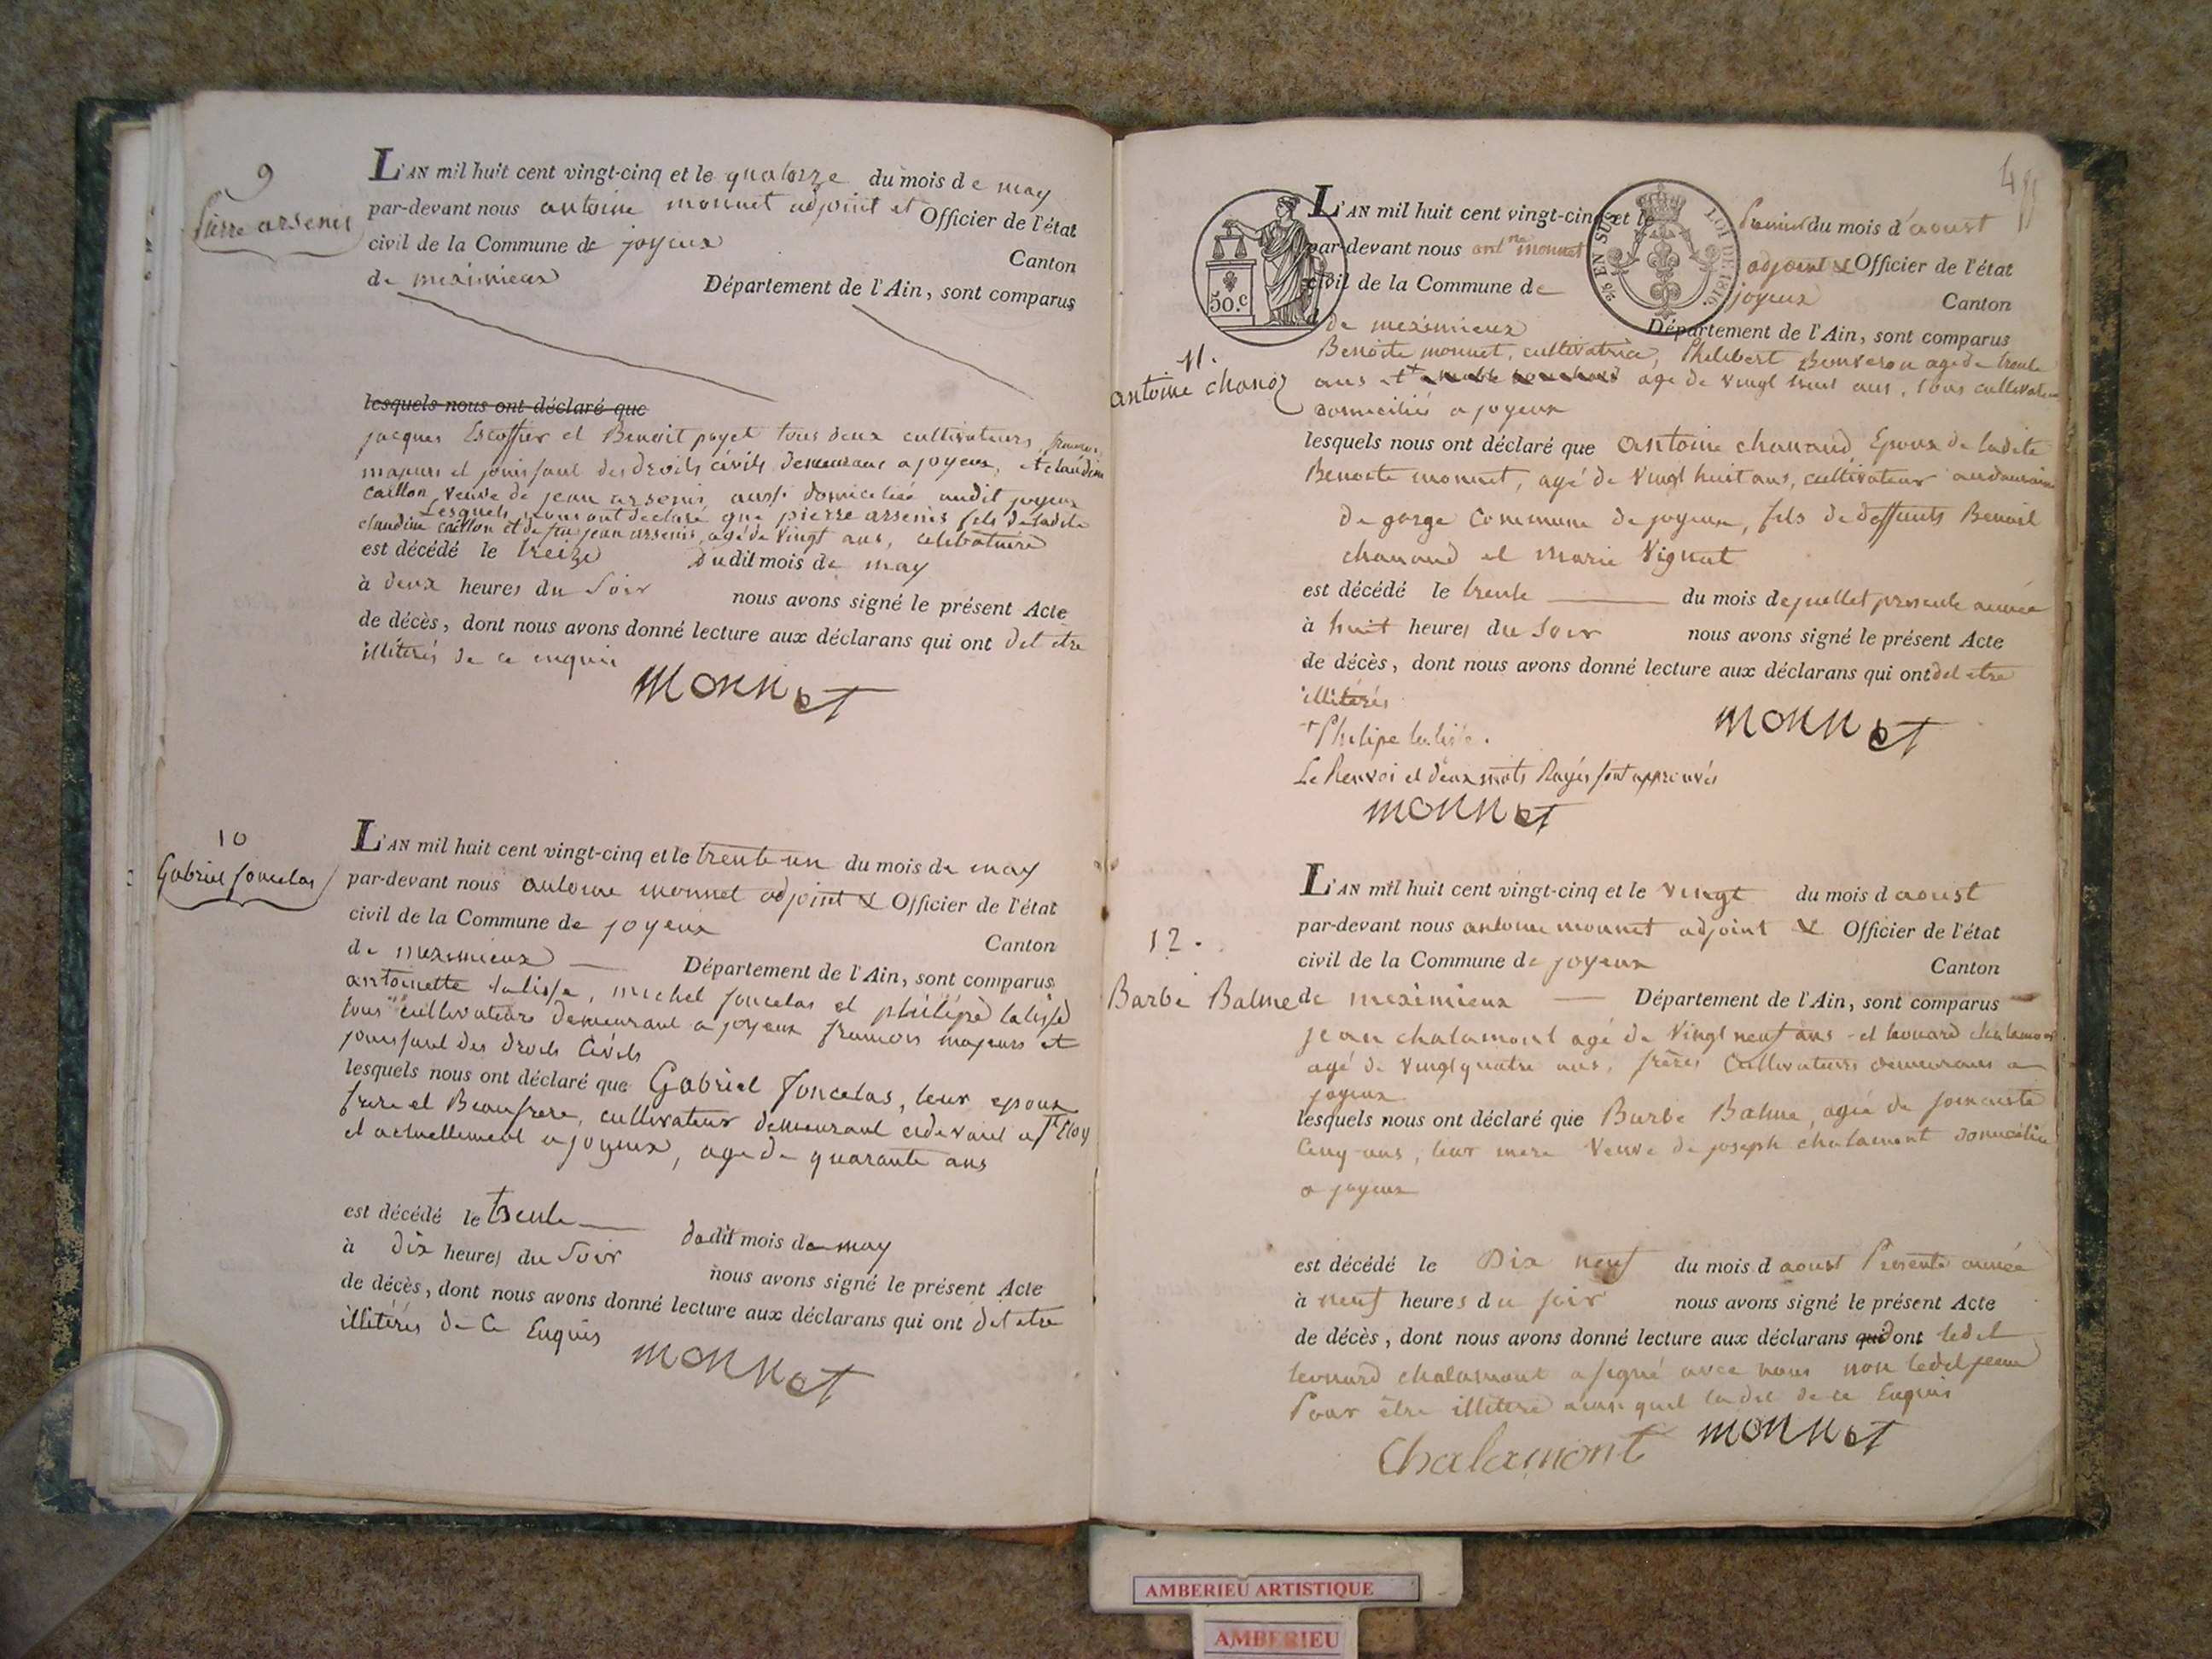 9
Pierre arsenis
L'AN mil huit cent vingt-cinq et le quatorze du mois de may
par-devant nous antoine monnet adjoint et Officier de l'état
civil de la Commune de joyeux
Canton
de meximieux Département de l'Ain, sont comparus
lesquels nous ont déclaré que
jacques Escoffier et Benoit poyet tous deux cultivateurs, francois
majeurs et jouissant des droits civils demeurans a joyeux, et claudine
caillon, veuve de jean arsenis aussi domiciliée audit joyeux
Lesquels nous ont déclaré que pierre arsenis fils de ladite
claudine caillon et de feu jean arsenis, agé de vingt ans, celibataire
est décédé le treize dudit mois de may
à deux heures du soir nous avons signé le présent Acte
de décès, dont nous avons donné lecture aux déclarans qui ont dit etre
illitérés de ce enquis
Monnet
10
Gabriel joncelas
L'AN mil huit cent vingt-cinq et le trente un du mois de may
par-devant nous antoine monnet adjoint & Officier de l'état
civil de la Commune de joyeux
Canton
de meximieux Département de l'Ain, sont comparus
antoinette lalisse, michel joncelas et philipe lalisse
tous cultivateurs demeurant a joyeux francois majeurs et
jouissant des droits civils
lesquels nous ont déclaré que Gabriel joncelas, leur epoux
frere et Beaufrere, cultivateur demeurant cidevant a St Eloy
et actuellement a joyeux, age de quarante ans
est décédé le trente dudit mois de may
à dix heures du soir nous avons signé le présent Acte
de décès, dont nous avons donné lecture aux déclarans qui ont dit etre
illitérés de ce Enquis
monnet
50.c
EN SUS
LOI DE 1816.
L'AN mil huit cent vingt-cinq et le premier du mois d'aoust
par-devant nous antne monnet adjoint & Officier de l'état
civil de la Commune de joyeux
Canton
de meximieux Département de l'Ain, sont comparus
11.
antoine chanoz
Benoite monnet, cultivatrice, Philibert age de trente
ans et + age de vingt huit ans, tous cultivateurs
domiciliés a joyeux
lesquels nous ont déclaré que antoine chanaud Epoux de ladite
Benoite monnet, agé de vingt huit ans, cultivateur au domaine
de gorge Commune de joyeux, fils de deffunts Benoit
chanaud et marie Vignat
est décédé le trente du mois de juillet presente année
à huit heures du soir nous avons signé le présent Acte
de décès, dont nous avons donné lecture aux déclarans qui ont dit etre
illitérés
monnet
+ Philipe lalisse.
Le Renvoi et deux mots Rayés sont approuvés
monnet
12.
Barbe Balme
L'AN mil huit cent vingt-cinq et le vingt du mois d aoust
par-devant nous antoine monnet adjoint & Officier de l'état
civil de la Commune de joyeux
Canton
de meximieux Département de l'Ain, sont comparus
jean chalamont agé de vingt neuf ans et leonard chalamont
agé de vingt quatre ans, frères Cultivateurs demeurans a
joyeux
lesquels nous ont déclaré que Barbe Balme, agée de soixante
Cinq ans, leur mere Veuve de joseph chalamont domiciliée
a joyeux
est décédé le Dix neuf du mois d aoust Presente année
à neuf heures du soir nous avons signé le présent Acte
de décès, dont nous avons donné lecture aux déclarans dont ledit
leonard chalamont a signé avec nous non ledit jean
Pour être illitéré ainsi quil la dit de ce Enquis
Chalamont monnet
AMBERIEU ARTISTIQUE
AMBERIEU